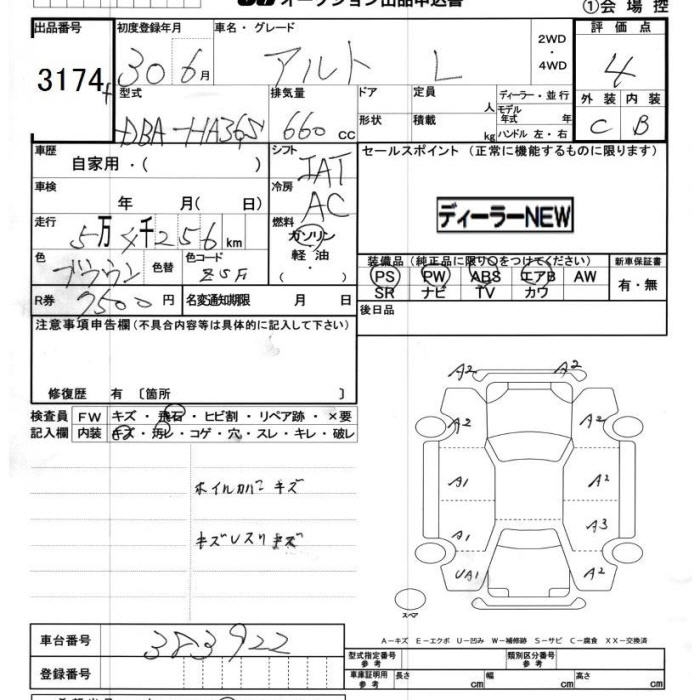 オークション出品申込書
①会場控
出品番号
3174
初度登録年月
30 6月
車名・グレード
アルト L
2WD
・
4WD
評価点
4
型式
DBA-HA36S
排気量
660 CC
ドア
形状
定員 人
積載 kg
ディーラー・並行
モデル年式 年
ハンドル 左・右
外装 内装
C B
車歴
自家用・( )
シフト
IAT
セールスポイント (正常に機能するものに限ります)
ディーラーNEW
車検
年 月( 日)
冷房
AC
走行
5万4千256 km
燃料
ガソリン
軽油
・
色
ブラウン
色替
色コード
装備品(純正品に限り○をつけてください)
PS PW ABS エアB AW
SR ナビ TV カワ
新車保証書
有・無
R券
7500円
名変通知期限 月 日
後日品
注意事項申告欄(不具合内容等は具体的に記入して下さい)
修復歴 有〔箇所 〕
検査員
記入欄
FW キズ・飛石・ヒビ割・リペア跡・×要
内装 キズ・汚レ・コゲ・穴・スレ・キレ・破レ
ホイルカバーキズ
キズUスリキズ
A2 A2
A2 A2
A1 A2
A1 A3
UA1 A2
スペア
A-キズ E-エクボ U-凹み W-補修跡 S-サビ C-腐食 XX-交換済
車台番号
383922
登録番号
型式指定番号
参考
類別区分番号
参考
車庫証明用
参考
長さ cm
幅 cm
高さ cm